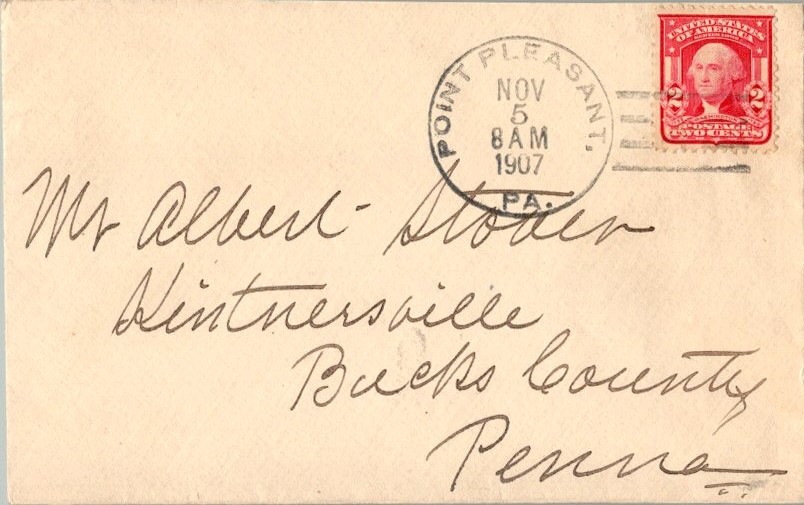 UNITED STATES
OF AMERICA
2 2
POSTAGE
TWO CENTS
POINT PLEASANT,
NOV
5
8 AM
1907
PA.
Mr Albert Stover
Kintnersville
Bucks County
Penna